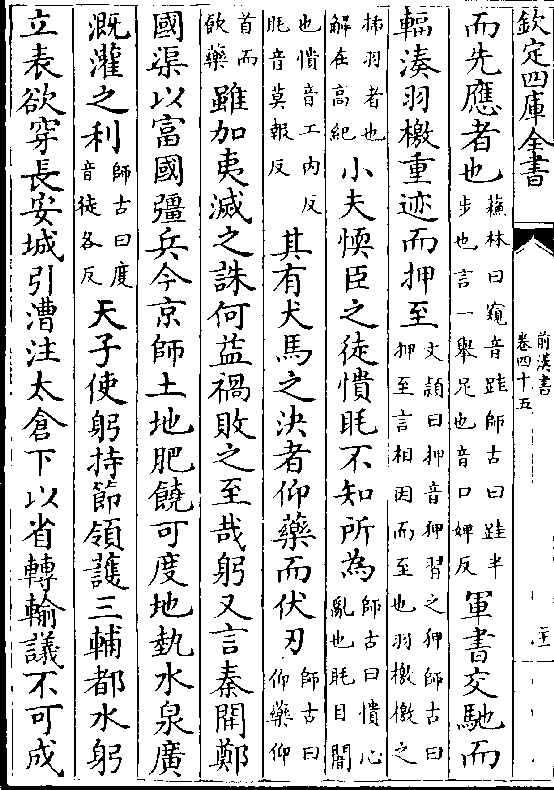 欽定四庫全書
前漢書
卷四十五
而先應者也蘇林曰窺音跬師古曰跬半步也言一舉足也音口婢反軍書交馳而
輻湊羽檄重迹而押至文頴曰押音狎習之狎師古曰押至言相因而至也羽檄檄之
揷羽者也解在高紀小夫愞臣之徒憒眊不知所為師古曰憒心亂也眊目闇
也憒音工内反眊音莫報反其有犬馬之決者仰藥而伏刃師古曰仰藥仰
首而飲藥雖加夷滅之誅何益禍敗之至哉躬又言秦開鄭
國渠以富國彊兵今京師土地肥饒可度地埶水泉廣
溉灌之利師古曰度音徒各反天子使躬持節領護三輔都水躬
立表欲穿長安城引漕注太倉下以省轉輸議不可成